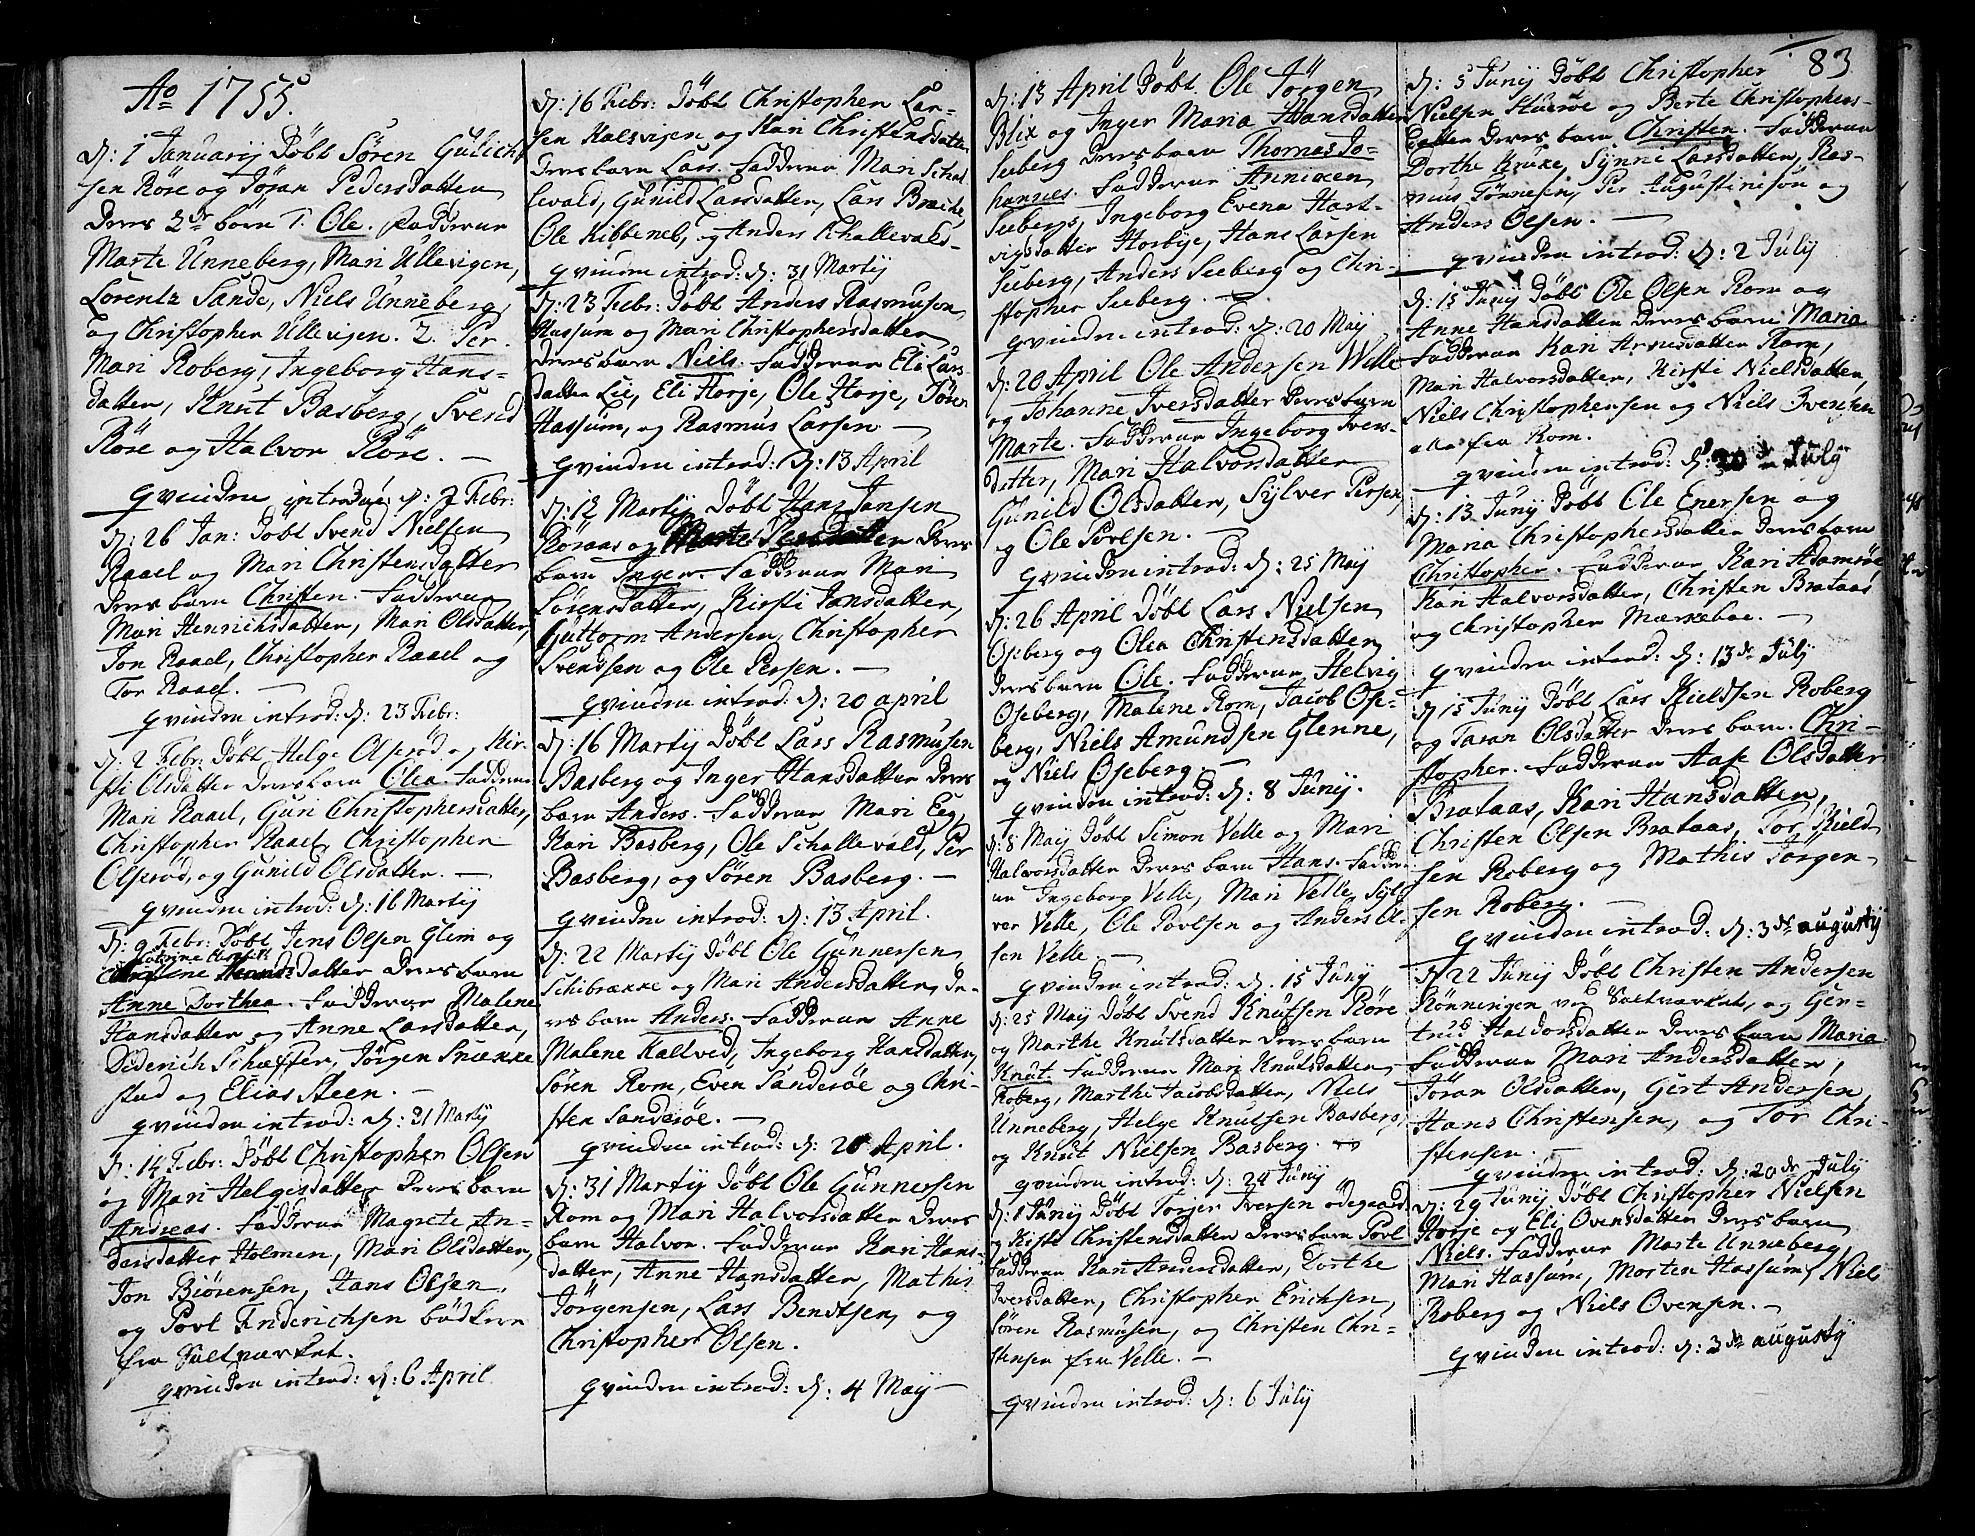 Ao 1755.
d: 1 Januarij Döbt Sören Gulich-
sen Röre og Jöran Pedersdatter
deres 2de börn 1. Ole. Fadderne
Marte Unneberg, Mari Ullevigen,
Lorentz Sande, Niels Unneberg,
og Christopher Ullevigen. 2. Per.
Mari Roberg, Ingeborg Hans-
datter, Knut Basberg, Svend
Röre og Halvor Röre. —
qvinden introd: d: 2 Febr:
d: 26 Jan: Döbt Svend Nielsen
Raael og Mari Christensdatter
deres barn Christen. Fadderne
Mari Henrichsdatter, Mari Olsdatter,
Jon Raael, Christopher Raael og
Tor Raael. —
qvinden introd: d: 23 Febr:
d: 2 Febr: Döbt Helge Olsröd og Kir-
sti Olsdatter deres barn Olea. Fadderne
Mari Raael, Guri Christophersdatter,
Christopher Raael, Christopher
Olsröd, og Gunild Olsdatter. —
qvinden introd: d: 16 Martij
d: 9 Febr: Döbt Jens Olsen Glein og
datter deres barn
Anne Dorthea. Fadderne Malene
Hansdatter og Anne Larsdatter,
Diderich Schaffer, Jörgen Snække-
stad og Elias Steen. —
qvinden introd: d: 31 Martij
d: 14 Febr: Döbt Christopher Olsen
og Mari Helgesdatter deres barn
Andreas. Fadderne Magrete An-
dersdatter Holmen, Mari Olsdatter,
Jon Biörensen, Hans Olsen,
og Povl Friderichsen bödker
fra Saltværket.
qvinden introd: d: 6 April
d: 16 Febr: Döbt Christopher Lar-
sen Halsvigen og Kari Christensdatter
deres barn Lars. Fadderne Mari Schal-
levald, Gunild Larsdatter, Lars Bræke,
Ole Kibbenel, og Anders Schallevald
qvinden introd: d: 31 Martij
d: 23 Febr: Döbt Anders Rasmusen
Hassum og Mari Christophersdatter
deres barn Niels. Fadderne Eli Lars-
datter Lie, Eli Horje, Ole Horje, Sören
Hassum, og Rasmus Larsen —
qvinden introd: d: 13 April
d: 12 Martij Döbt Hans Jansen
Röraas og Marte deres
barn Inger. Fadderne Mari
Sörensdatter, Kirsti Jansdatter,
Guttorm Andersen, Christopher
Svendsen og Ole Persen. —
qvinden introd: d: 20 april
d: 16 Martij Döbt Lars Rasmusen
Basberg og Inger Hansdatter deres
barn Anders. Fadderne Mari Eeg,
Kari Basberg, Ole Schallevald, Per
Basberg, og Sören Basberg. —
qvinden introd: d: 13 April.
d: 22 Martij Döbt Ole Gunnersen
Schibrække og Mari Andersdatter, de-
res barn Anders. Fadderne Anne
Malene Kallved, Ingeborg Hansdatter,
Sören Rom, Even Sanderöe og Chri-
sten Sanderöe. —
qvinden introd: d: 20 April.
d: 31 Martij Döbt Ole Gunnersen
Rom og Mari Halvorsdatter deres
barn Halvor. Fadderne Kari Hans-
datter, Anne Hansdatter, Mathis
Jörgensen, Lars Bendtsen, og
Christopher Olsen.
qvinden introd: d: 4 Maij —
d: 13 April Döbt Ole Jörgen
Blix og Inger Maria Hansdatter
Seeberg deres barn Thomas Jo-
hannes. Fadderne Anniken
Seebergs, Ingeborg Evena Hart-
vigsdatter Horbye, Hans Larsen
Seeberg, Anders Seeberg og Chri-
stopher Seeberg. —
qvinden introd: d: 20 Maij
d: 20 April Ole Andersen Welle
og Johanne Iversdatter deres barn
Marte. Fadderne Ingeborg Ivers-
datter, Mari Halvorsdatter
Gunild Olsdatter, Sylver Persen,
og Ole Povlsen. —
qvinden introd: d: 25 Maij
d: 26 April Döbt Lars Nielsen
Oseberg og Olea Christensdatter
deres barn Ole. Fadderne Helvig
Oseberg, Malene Rom, Jacob Ose-
berg, Niels Amundsen Glenne,
og Niels Oseberg. —
qvinden introd: d: 8 Junij.
d: 8 Maij Döbt Simon Velle og Mari
Halvorsdatter deres barn Hans. Fadder-
ne Ingeborg Velle, Mari Velle, Syl-
ver Velle, Ole Povlsen og Anders Ol-
sen Velle —
qvinden introd: d. 15 Junij
d: 25 Maij Döbt Svend Knutsen Röre
og Marthe Knutsdatter deres barn
Knut. Fadderne Mari Knutsdatter
Roberg, Marthe Jacobsdatter, Niels
Unneberg, Helge Knutsen Basberg,
og Knut Nielsen Basberg.
qvinden introd: d: 24 Junij
d: 1 Junij Döbt Torjer Iversen ödegaard
og Kisti Christensdatter deres barn Povl
Fadderne Kari Andersdatter, Dorthe
Iversdatter, Christopher Erichsen,
Sören Rasmusen, og Christen Chri-
stensen fra Velle. —
qvinden introd: d: 6 Julij
83
d: 5 Junij Döbt Christopher
Nielsen Stueröe og Berte Christophers-
datter deres barn Christen. Fadderne
Dorthe Kruke, Synni Larsdatter, Ras-
mus Tönnesen, Per Augustinisön og
Anders Olsen. —
qvinden introd: d: 2 Julij
d: 15 Junij Döbt Ole Olsen Rom og
Anne Hansdatter deres barn Maria
Fadderne Kari Arnesdatter Rom,
Mari Halvorsdatter, Kirsti Nielsdatter,
Niels Christophersen og Niels Ivensen
alle fra Rom.
qvinden introd: d: Julij
d: 13 Junij Döbt Ole Enersen og
Maria Christophersdatter deres barn
Christopher. Fadderne Kari Adamröe,
Kari Halvorsdatter, Christen Brataas
og Christopher Markeboe. —
qvinden introd: d: 13de Julij
d: 15 Junij Döbt Lars Kieldsen Roberg
og Taran Olsdatter deres barn Chri-
stopher. Fadderne Aase Olsdatter
Brataas, Kari Hansdatter,
Christen Olsen Brataas, Tor Kield-
sen Roberg og Mathis Jörgen-
sen Roberg. —
qvinden introd: d: 3de augustij
d: 22 Junij Döbt Christen Andersen
Rönningen ved Saltværket, og Ger-
trud Haldorsdatter deres barn Maria.
Fadderne Mari Andersdatter,
Jöran Olsdatter, Gert Andersen,
Hans Christensen, og Tor Chri-
stensen. —
qvinden introd: d: 20de Julij
d: 29 Junij Döbt Christopher Nielsen
Horje og Eli Ovensdatter deres barn
Niels. Fadderne Marte Unneberg,
Mari Hassum, Morten Hassum, Niels
Roberg og Niels Ovensen. —
qvinden introd: d: 3de augustij